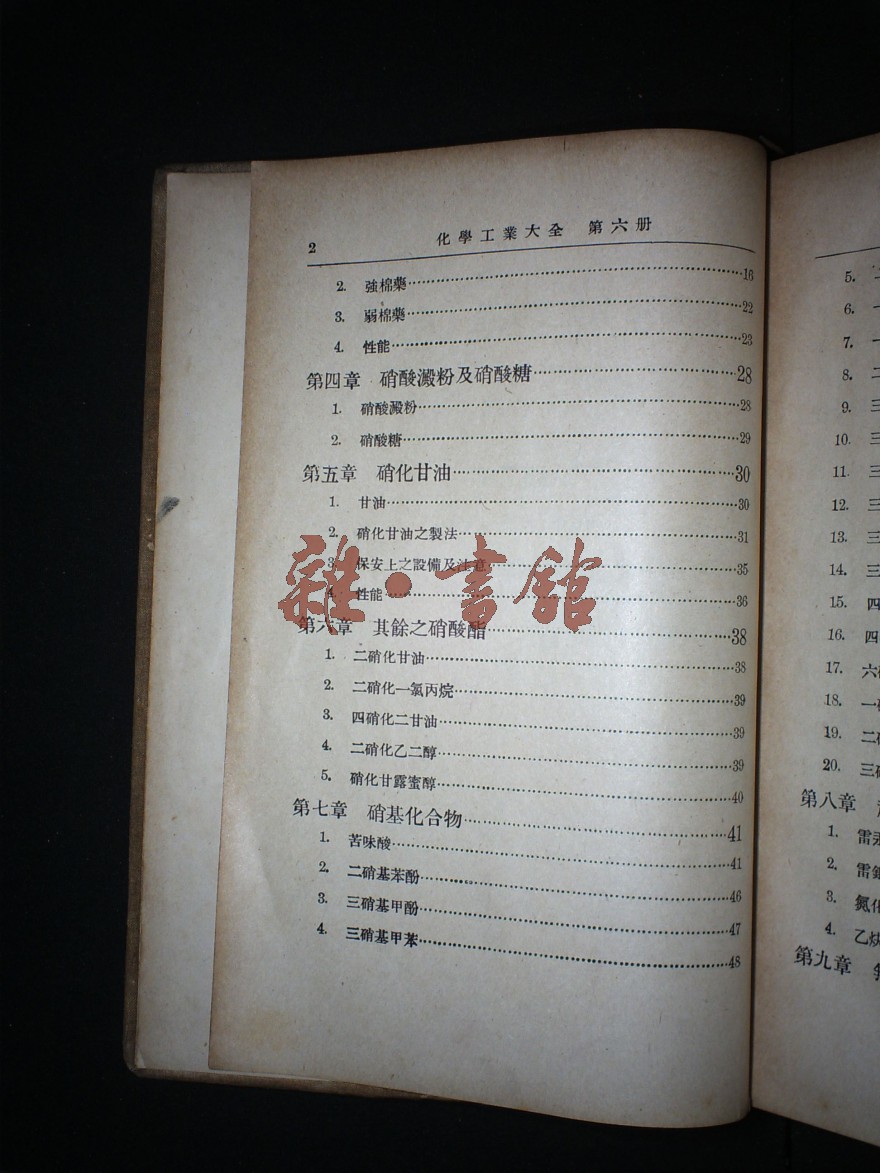 2 化學工業大全 第六册
2. 強棉藥 16
3. 弱棉藥 22
4. 性能 23
第四章 硝酸澱粉及硝酸糖 28
1. 硝酸澱粉 28
2. 硝酸糖 29
第五章 硝化甘油 30
1. 甘油 30
2. 硝化甘油之製法 31
3. 保安上之設備及注意 35
4. 性能 36
第六章 其餘之硝酸酯 38
1. 二硝化甘油 38
2. 二硝化一氯丙烷 39
3. 四硝化二甘油 39
4. 二硝化乙二醇 39
5. 硝化甘露蜜醇 40
第七章 硝基化合物 41
1. 苦味酸 41
2. 二硝基苯酚 46
3. 三硝基甲酚 47
4. 三硝基甲苯 48
雜·書館
5. 二
6. 一
7. 一
8. 二
9. 三
10. 三
11. 三
12. 三
13. 三
14. 三
15. 四
16. 四
17. 六
18. 一
19. 二
20. 三
第八章
1. 雷
2. 雷
3. 氮化
4. 乙炔
第九章